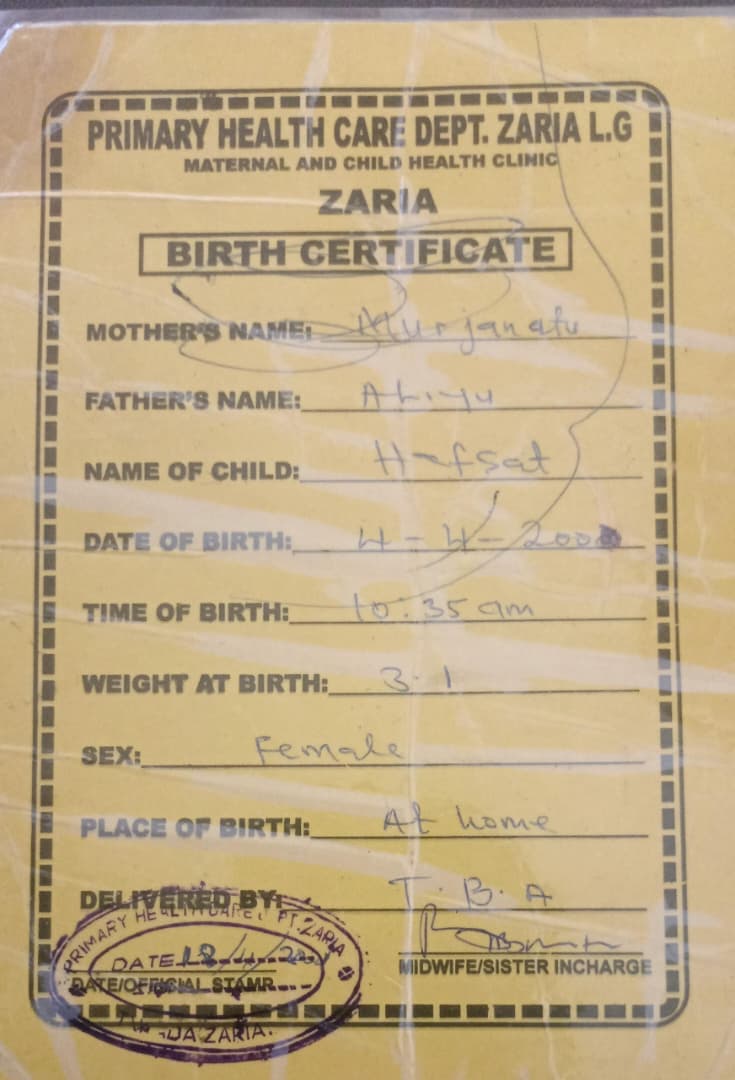 PRIMARY HEALTH CARE DEPT. ZARIA L.G
MATERNAL AND CHILD HEALTH CLINIC
ZARIA
BIRTH CERTIFICATE
MOTHER'S NAME: Murjanatu
FATHER'S NAME: Aliyu
NAME OF CHILD: Hafsat
DATE OF BIRTH: 4-4-200
TIME OF BIRTH: 10:35 am
WEIGHT AT BIRTH: 3.1
SEX: Female
PLACE OF BIRTH: At home
DELIVERED BY: T.B.A
MIDWIFE/SISTER INCHARGE
DATE/OFFICIAL STAMP
PRIMARY HEALTH CARE DEPT. ZARIA
DATE 18/4/
ZARIA.